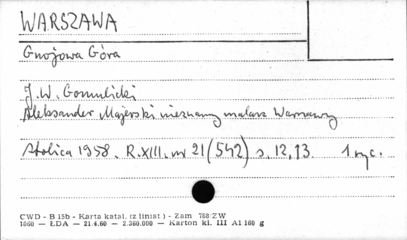 WARSZAWA
Gnojowa Góra
J. W. Gomulicki
Aleksander Majerski nieznany malarz Warszawy
Stolica 1958. R.XIII. nr 21 (542) s. 12, 13. 1 ryc.
CWD - B 15b - Karta katal. (z liniat) - Zam 768 ZW
1060 — EDA — 21.4.60 — 2.360.000 — Karton kl. III A1 160 g